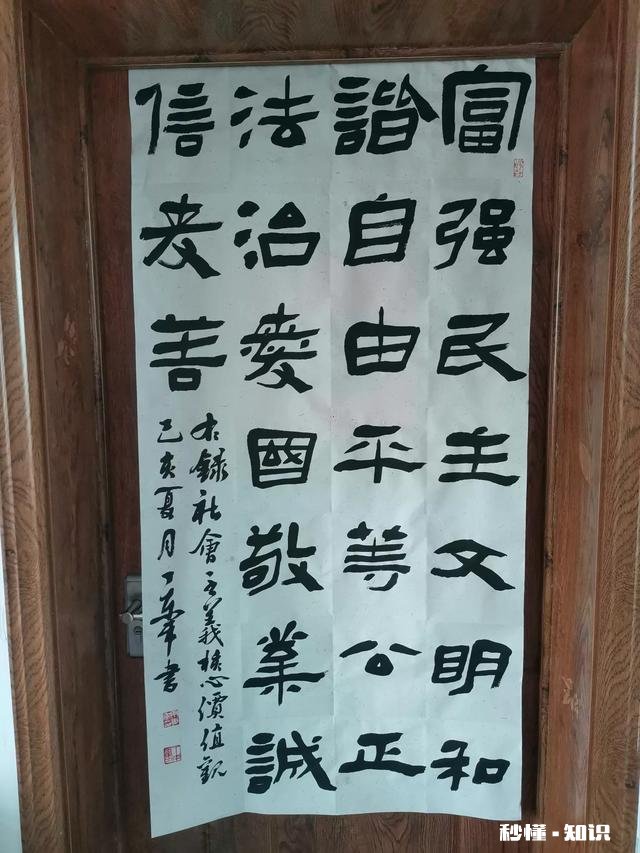 富强民主文明和
諧自由平等公正
法治愛國敬業誠
信友善
右録社會主義核心價值觀
己亥夏月丁書
秒懂·知识